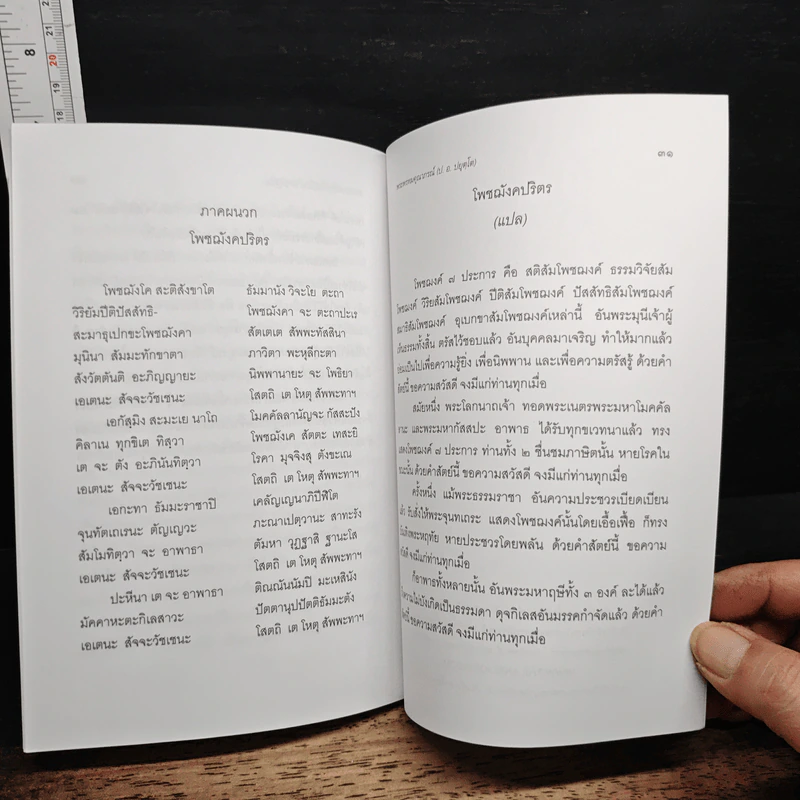 8
20
19
21
18
ภาคผนวก
โพชฌังคปริตร
โพชฌังโค สะติสังขาโต ธัมมานัง วิจะโย ตะถา
วิริยัมปีติปัสสัทธิ- โพชฌังคา จะ ตะถาปะเร
สะมาธุเปกขะโพชฌังคา สัตเตเต สัพพะทัสสินา
มุนินา สัมมะทักขาตา ภาวิตา พะหุลีกะตา
สังวัตตันติ อะภิญญายะ นิพพานายะ จะ โพธิยา
เอเตนะ สัจจะวัชเชนะ โสตถิ เต โหตุ สัพพะทาฯ
เอกัสฺมิง สะมะเย นาโถ โมคคัลลานัญจะ กัสสะปัง
คิลาเน ทุกขิเต ทิสฺวา โพชฌังเค สัตตะ เทสะยิ
เต จะ ตัง อะภินันทิตฺวา โรคา มุจจิงสุ ตังขะเณ
เอเตนะ สัจจะวัชเชนะ โสตถิ เต โหตุ สัพพะทาฯ
เอกะทา ธัมมะราชาปิ เคลัญเญนาภิปีฬิโต
จุนทัตเถเรนะ ตัญเญวะ ภะณาเปตฺวานะ สาทะรัง
สัมโมทิตฺวา จะ อาพาธา ตัมหา วุฏฐาสิ ฐานะโส
เอเตนะ สัจจะวัชเชนะ โสตถิ เต โหตุ สัพพะทาฯ
ปะหีนา เต จะ อาพาธา ติณณันนัมปิ มะเหสินัง
มัคคาหะตะกิเลสาวะ ปัตตานุปปัตติธัมมะตัง
เอเตนะ สัจจะวัชเชนะ โสตถิ เต โหตุ สัพพะทาฯ
พระพรหมคุณาภรณ์ (ป. อ. ปยุตฺโต) ๓๑
โพชฌังคปริตร
(แปล)
โพชฌงค์ ๗ ประการ คือ สติสัมโพชฌงค์ ธรรมวิจัยสัม
โพชฌงค์ วิริยสัมโพชฌงค์ ปีติสัมโพชฌงค์ ปัสสัทธิสัมโพชฌงค์
สมาธิสัมโพชฌงค์ อุเบกขาสัมโพชฌงค์เหล่านี้ อันพระมุนีเจ้าผู้
เห็นธรรมทั้งสิ้น ตรัสไว้ชอบแล้ว อันบุคคลมาเจริญ ทำให้มากแล้ว
ย่อมเป็นไปเพื่อความรู้ยิ่ง เพื่อนิพพาน และเพื่อความตรัสรู้ ด้วยคำ
สัตย์นี้ ขอความสวัสดี จงมีแก่ท่านทุกเมื่อ
สมัยหนึ่ง พระโลกนาถเจ้า ทอดพระเนตรพระมหาโมคคัล
ลานะ และพระมหากัสสปะ อาพาธ ได้รับทุกขเวทนาแล้ว ทรง
แสดงโพชฌงค์ ๗ ประการ ท่านทั้ง ๒ ชื่นชมภาษิตนั้น หายโรคใน
ขณะนั้น ด้วยคำสัตย์นี้ ขอความสวัสดี จงมีแก่ท่านทุกเมื่อ
ครั้งหนึ่ง แม้พระธรรมราชา อันความประชวรเบียดเบียน
แล้ว รับสั่งให้พระจุนทเถระ แสดงโพชฌงค์นั้นโดยเอื้อเฟื้อ ก็ทรง
บันเทิงพระหฤทัย หายประชวรโดยพลัน ด้วยคำสัตย์นี้ ขอความ
สวัสดี จงมีแก่ท่านทุกเมื่อ
ก็อาพาธทั้งหลายนั้น อันพระมหาฤษีทั้ง ๓ องค์ ละได้แล้ว
ถึงความไม่บังเกิดเป็นธรรมดา ดุจกิเลสอันมรรคกำจัดแล้ว ด้วยคำ
สัตย์นี้ ขอความสวัสดี จงมีแก่ท่านทุกเมื่อ